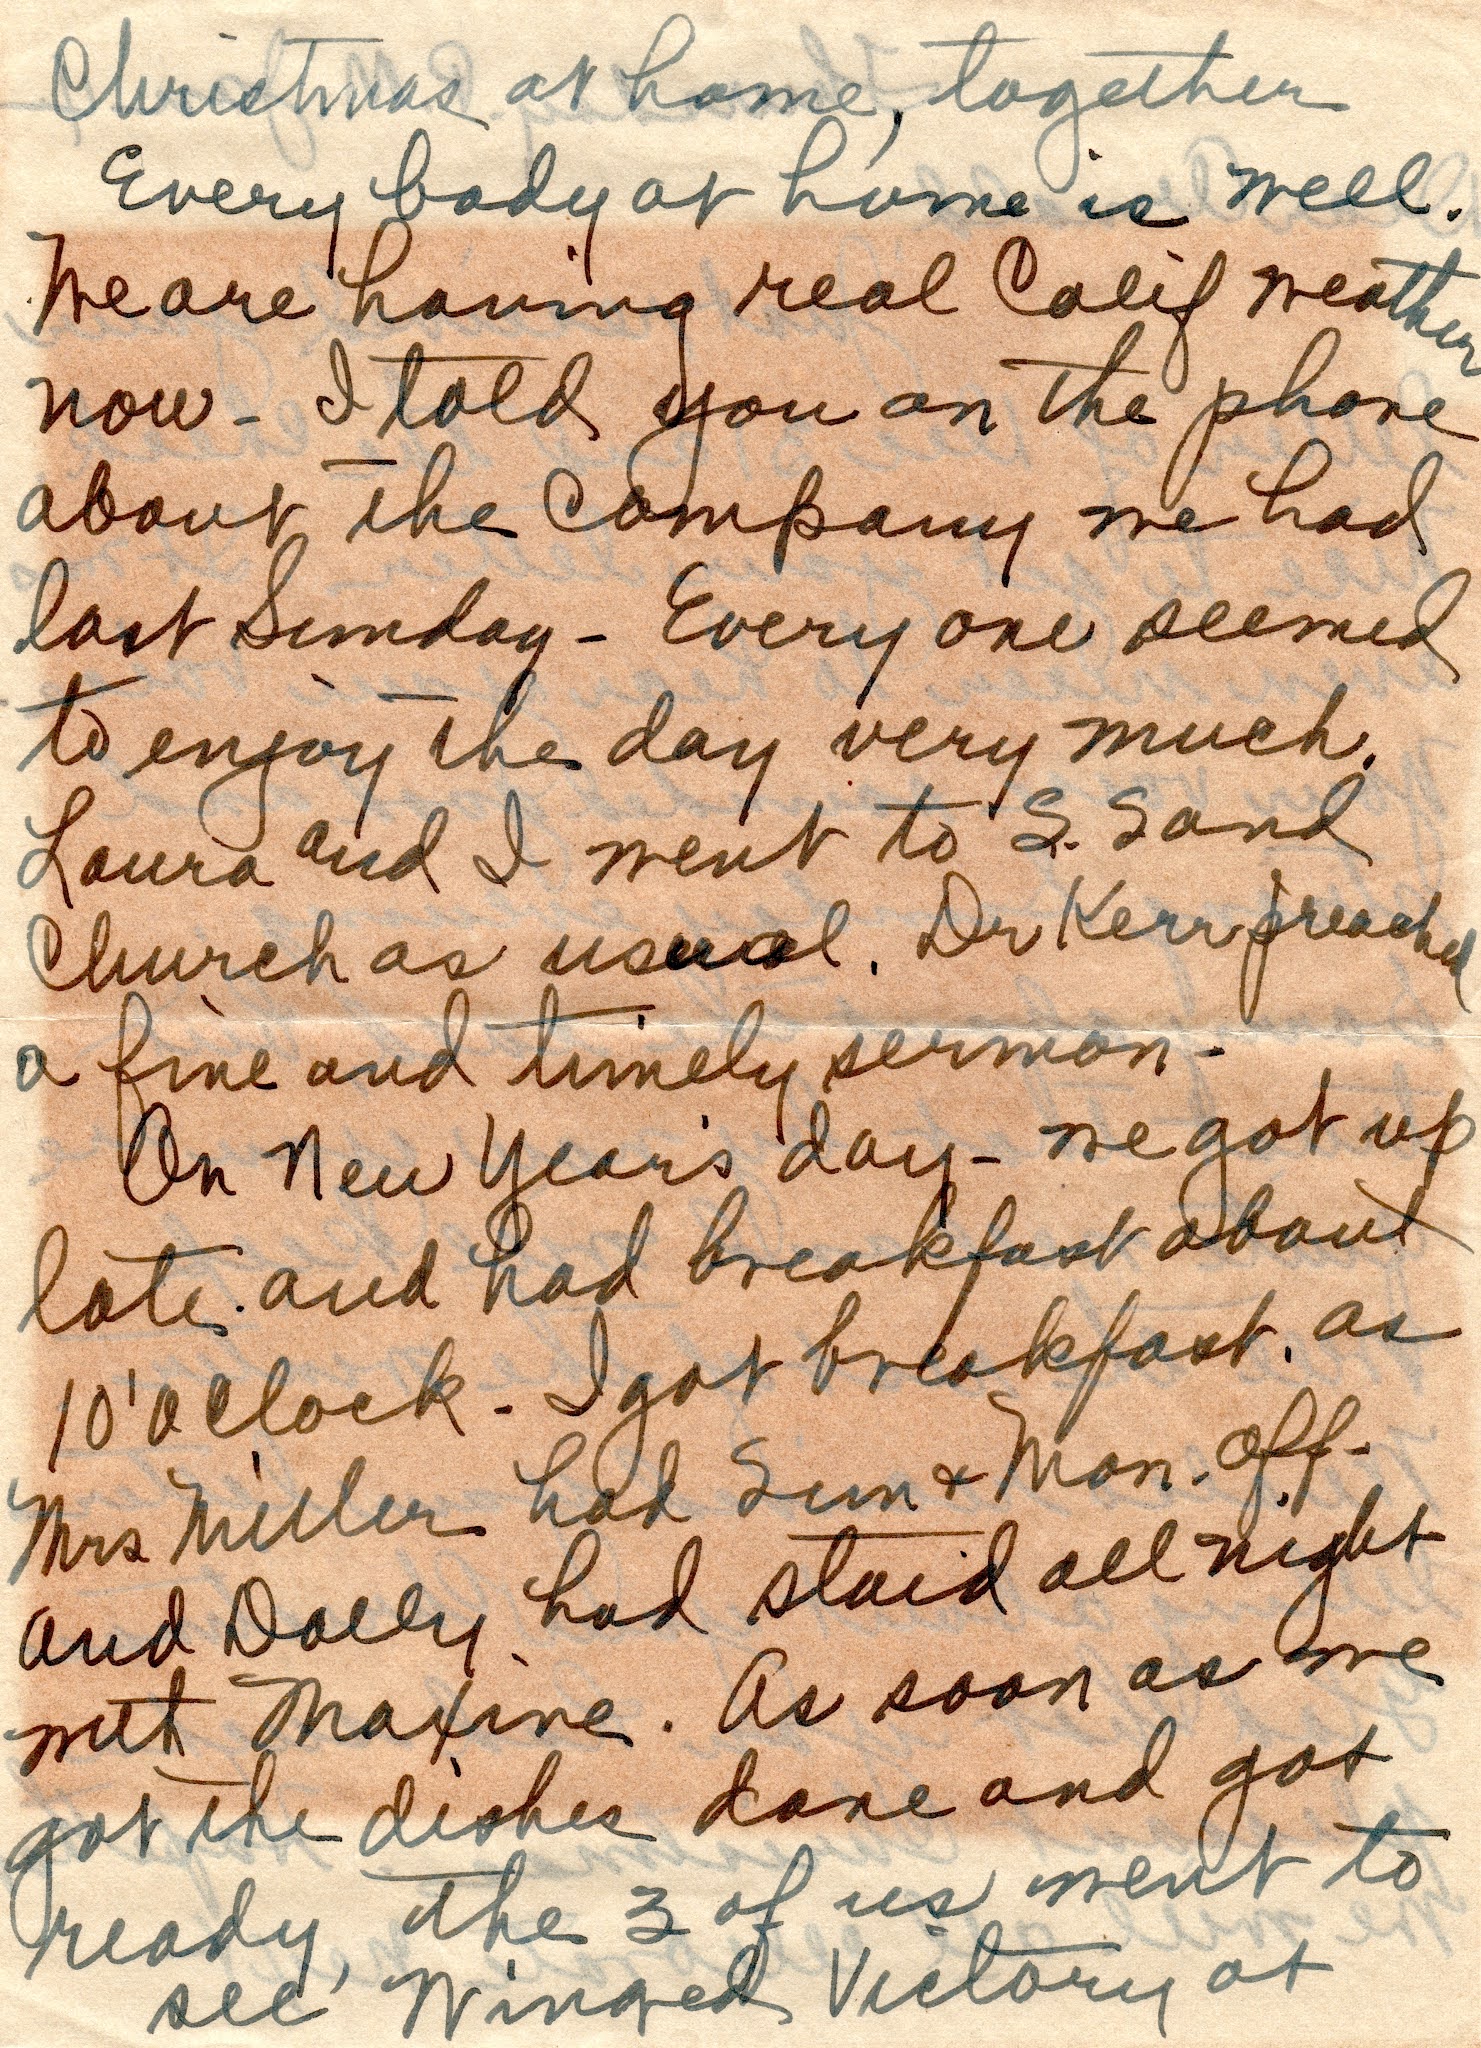 Christmas at home, together
Every body at home is well.
We are having real Calif weather
now - I told you on the phone
about the Company we had
last Sunday - Every one seemed
to enjoy the day very much.
Laura and I went to S. Sand
Church as usual. Dr Kerr preached
a fine and timely sermon -
On New Year's day - we got up
late. and had breakfast about
10'oclock - I got breakfast. as
Mrs Miller had Sun & Mon. off -
and Dolly had staid all night
with Maxine. As soon as we
got the dishes done and got
ready, the 3 of us went to
see Winged Victory at